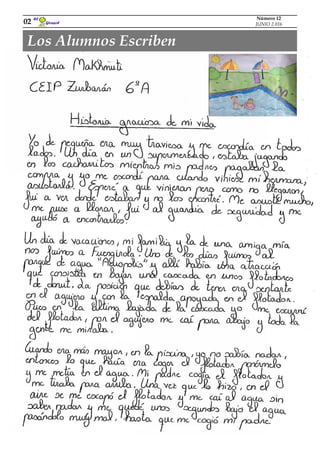 02
Número 12
JUNIO 2.016
Los Alumnos Escriben
Victoria Makhmiti
CEIP Zurbarán 6ºA
Historia graciosa de mi vida
Yo de pequeña era muy traviesa y me escondía en todos
lados. Un día en un supermercado, estaba jugando
en los cacharritos mientras mis padres pagaban la
compra y yo me escondí para cuando viniese mi hermana,
asustarla. Esperé a que vinieran pero como no llegaron,
fui a ver donde estaban y no los encontré. Me asusté mucho,
me puse a llorar, fui al guardia de seguridad y me
ayudó a encontrarlos.
Un día de vacaciones, mi familia y la de una amiga mía
nos fuimos a Fuengirola. Uno de los días fuimos al
parque de agua "Aquopolis" y allí había una atracción
que consistía en bajar una cascada en unos flotadores
de donut. La posición que debías de tener era sentarte
en el agujero y con la espalda apoyada en el flotador.
Pues en la última bajada de la cascada yo me escurrí
del flotador, por el agujero me caí para abajo y toda la
gente me miraba.
Cuando era más mayor, en la piscina, yo no sabía nadar,
entonces lo que hacía era coger el flotador ponérmelo
y me metía en el agua. Mi padre cogía el flotador y
me tiraba para arriba. Una vez que lo hizo, en el
aire se me escapó el flotador y me caí al agua sin
saber nadar y me quedé unos segundos bajo el agua
pasándolo muy mal, hasta que me cogió mi padre.